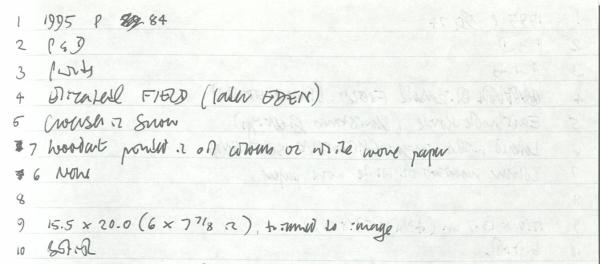 1 1995 P 84
2 P&D
3 Prints
4 Elizabeth FIELD (later EDEN)
5 in Snow
7 Woodcut printed in oil colours on white wove paper
6 None
8
9 15.5 x 20.0 (6 x 7 7/8 in), trimmed to image
10